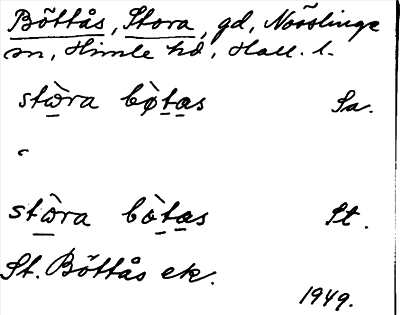 Böttås, Stora, gd, Nösslinge
sn, Himle hd, Hall. l.
stὼra bø̀tas Sa.
stὼra bὼtas St.
St. Böttås ek.
1949.